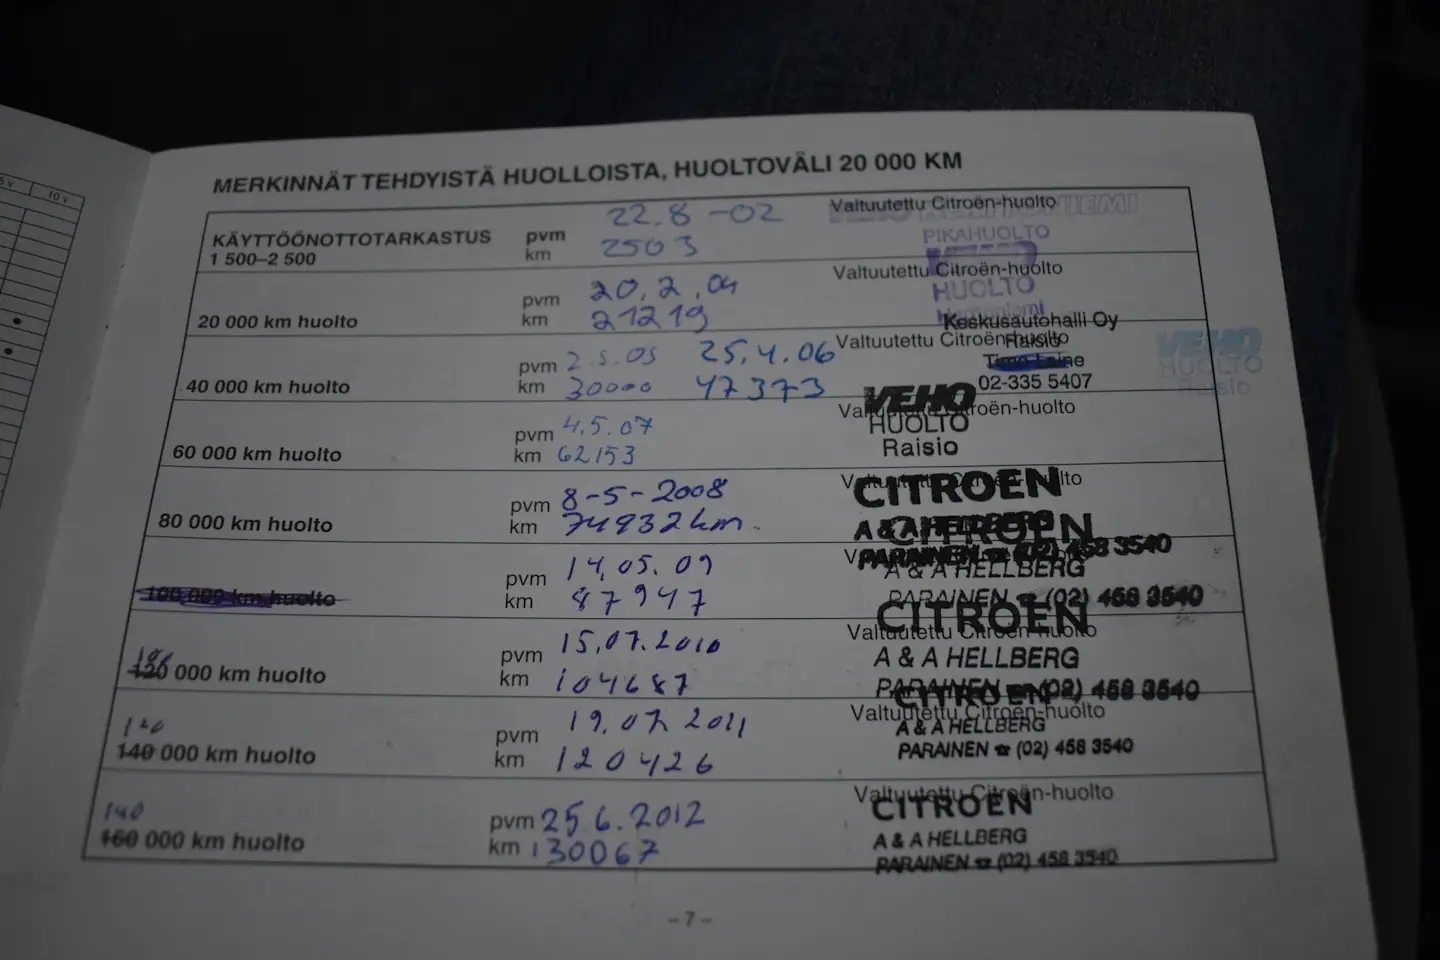 5 v 10 v
MERKINNÄT TEHDYISTÄ HUOLLOISTA, HUOLTOVÄLI 20 000 KM
KÄYTTÖÖNOTTOTARKASTUS
1 500–2 500
pvm 22.8 -02
km 2503
Valtuutettu Citroën-huolto
PIKAHUOLTO
20 000 km huolto
pvm 20.2.04
km 21219
Valtuutettu Citroën-huolto
VEHO
HUOLTO
Keskusautohalli Oy
40 000 km huolto
pvm 2.5.05 25.4.06
km 30000 47373
Valtuutettu Citroën-huolto
Raisio
Timo Laine
02-335 5407
VEHO
HUOLTO
Raisio
60 000 km huolto
pvm 4.5.07
km 62153
Valtuutettu Citroën-huolto
VEHO
HUOLTO
Raisio
80 000 km huolto
pvm 8-5-2008
km 74932km.
Valtuutettu Citroën-huolto
CITROEN
A & A HELLBERG
PARAINEN ☎ (02) 458 3540
100 000 km huolto
pvm 14.05.09
km 87947
CITROEN
A & A HELLBERG
PARAINEN ☎ (02) 458 3540
120 000 km huolto
pvm 15.07.2010
km 104687
Valtuutettu Citroën-huolto
CITROEN
A & A HELLBERG
PARAINEN ☎ (02) 458 3540
120
140 000 km huolto
pvm 19.07.2011
km 120426
Valtuutettu Citroën-huolto
CITROEN
A & A HELLBERG
PARAINEN ☎ (02) 458 3540
140
160 000 km huolto
pvm 25 6.2012
km 130067
Valtuutettu Citroën-huolto
CITROEN
A & A HELLBERG
PARAINEN ☎ (02) 458 3540
– 7 –